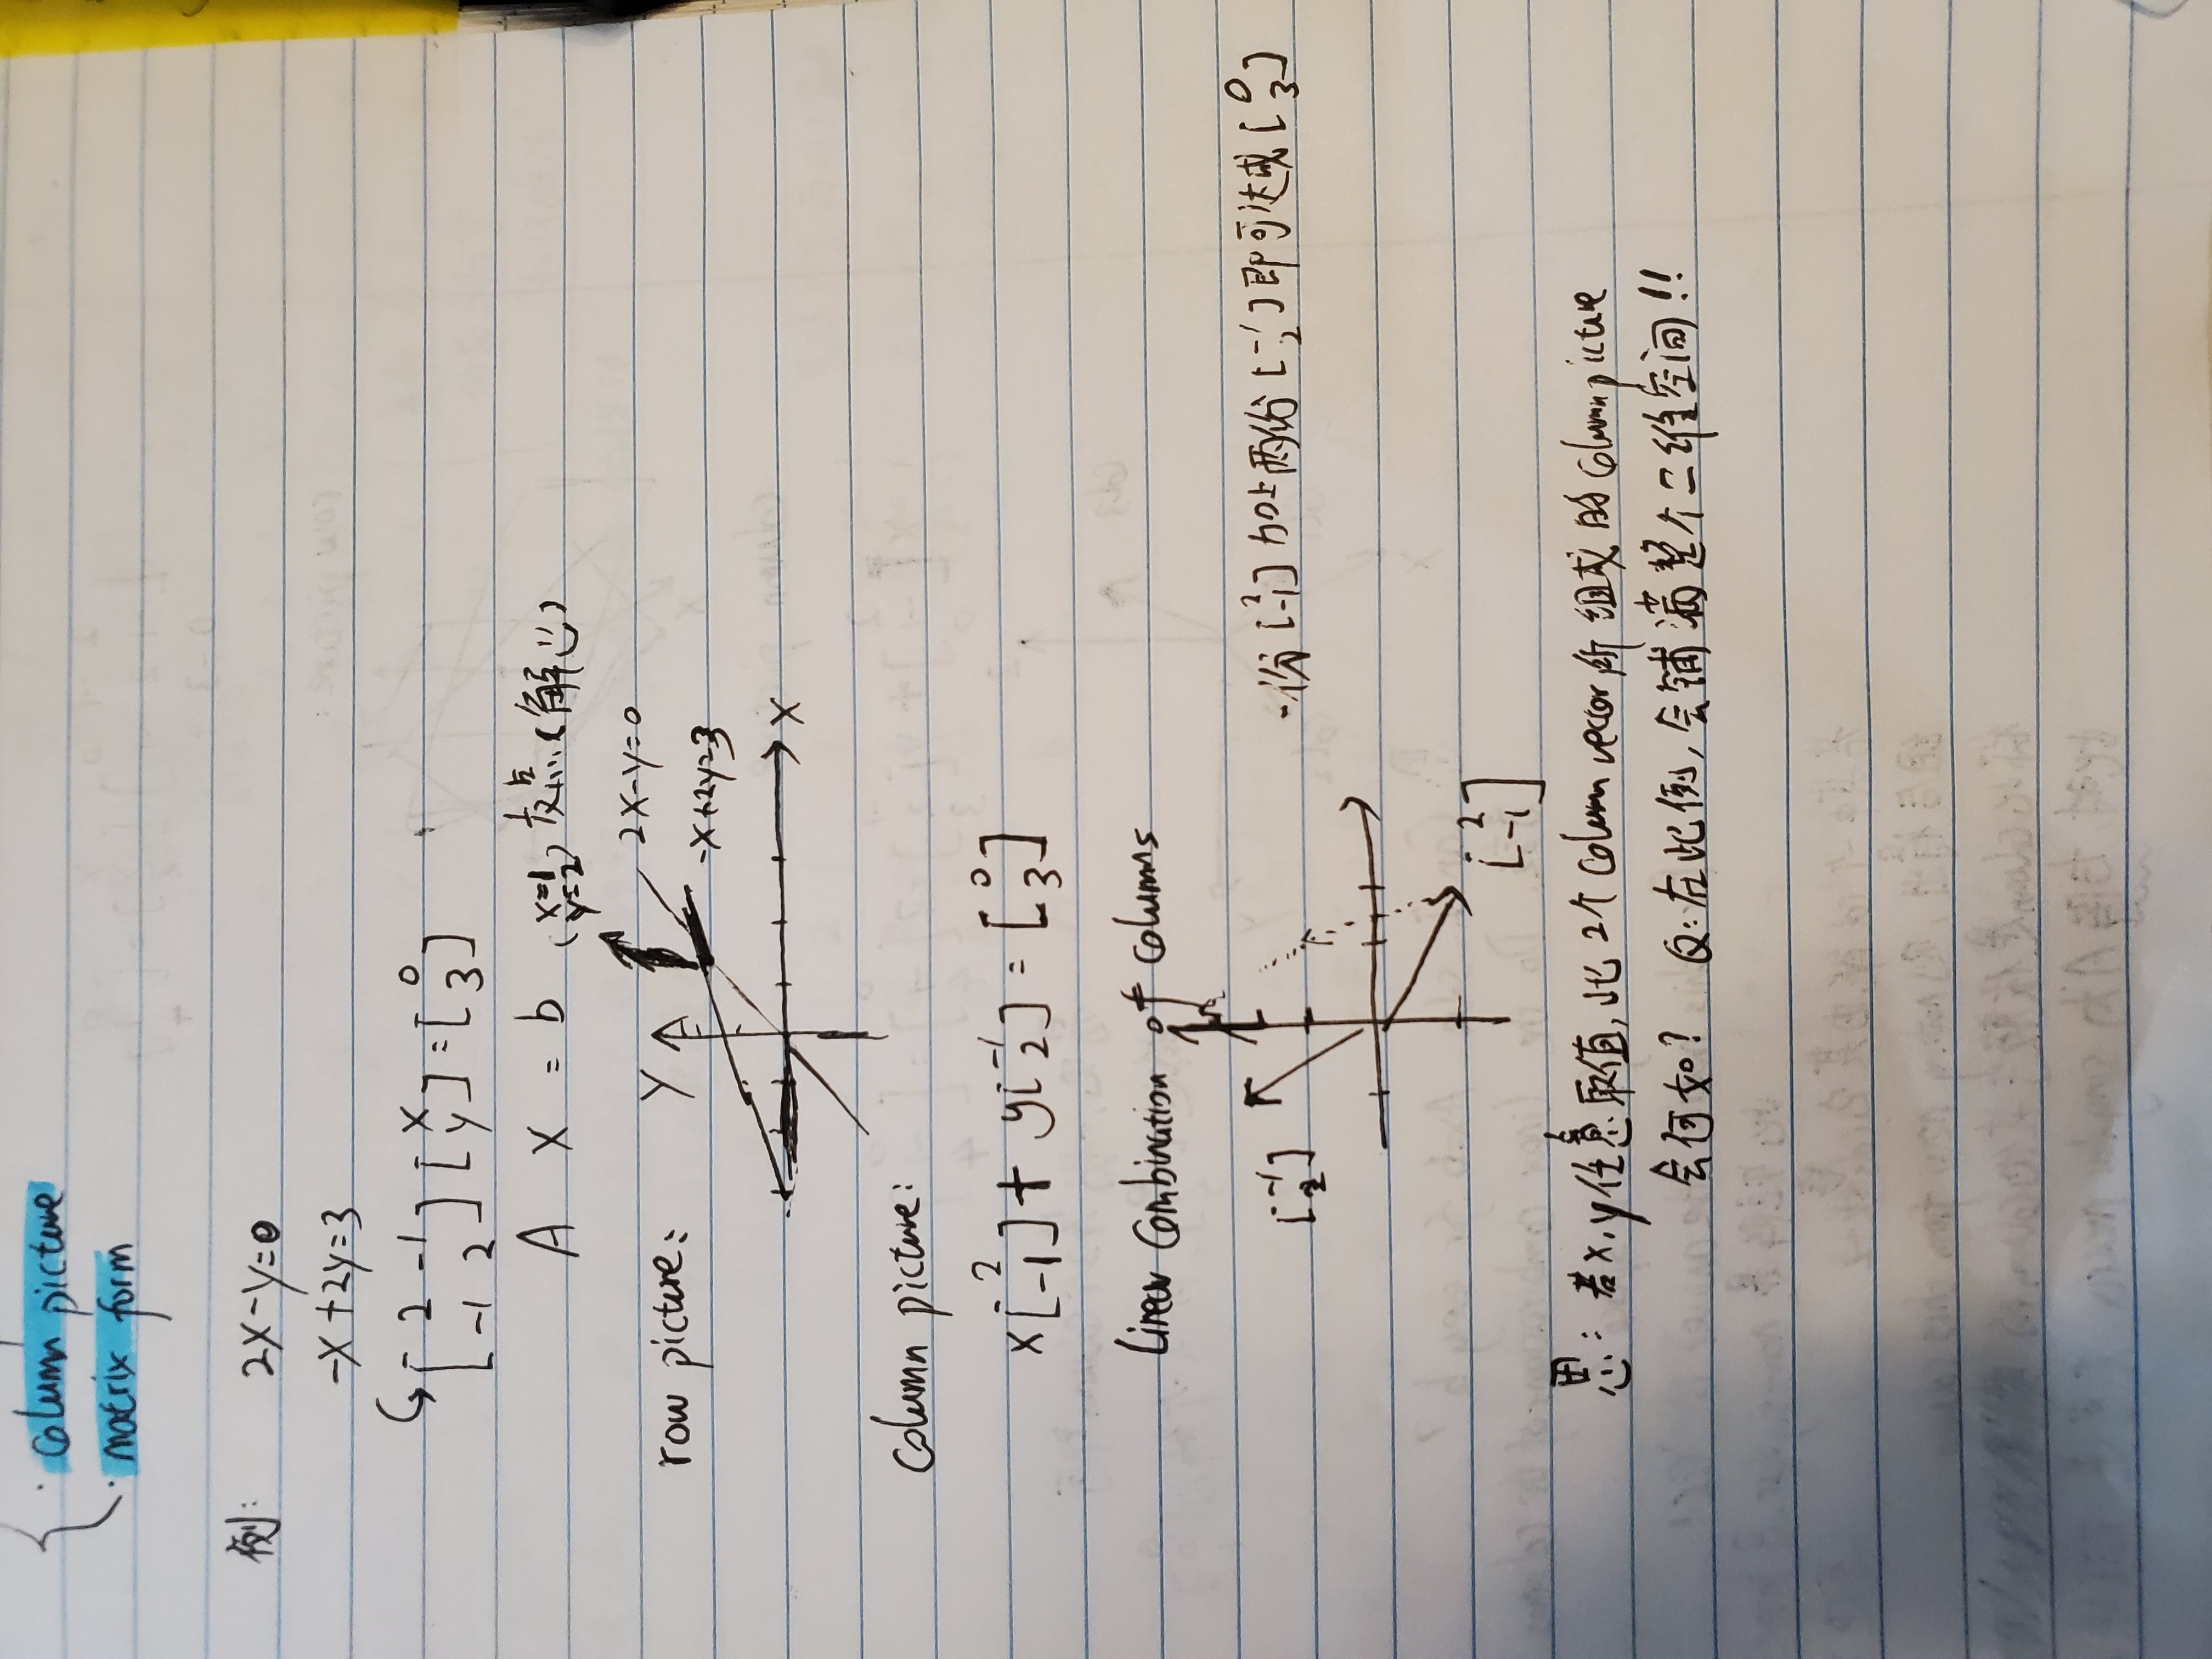 · column picture
· matrix form
例: 2X-y=0
-X+2y=3
[2 -1
-1 2] [X
y] = [0
3]
A X = b (x=1
y=2) 交点(解♡)
row picture: Y
2X-y=0
-X+2y=3
X
Column picture:
x[2
-1] + y[-1
2] = [0
3]
Linear Combination of columns
[-1
2]
一份[2
-1]加上两份[-1
2]即可达成[0
3]
[2
-1]
思: 若x,y任意取值,此2个Column vector所组成的Column picture
会何如? Q:在此例,会铺满整个二维空间!!